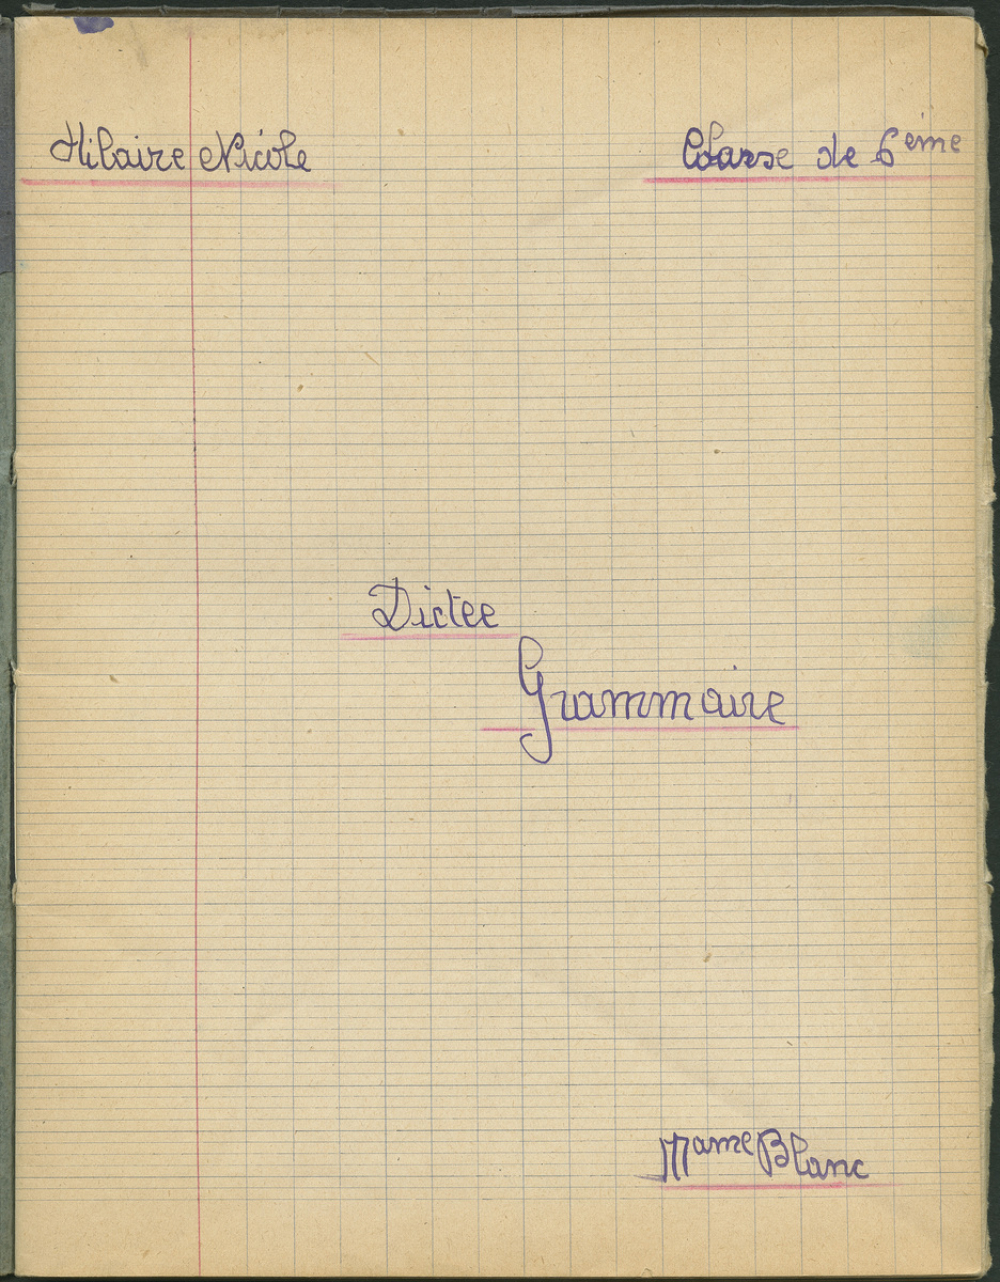 Hilaire Nicole
Classe de 6ème
Dictee
Grammaire
Mame Blanc